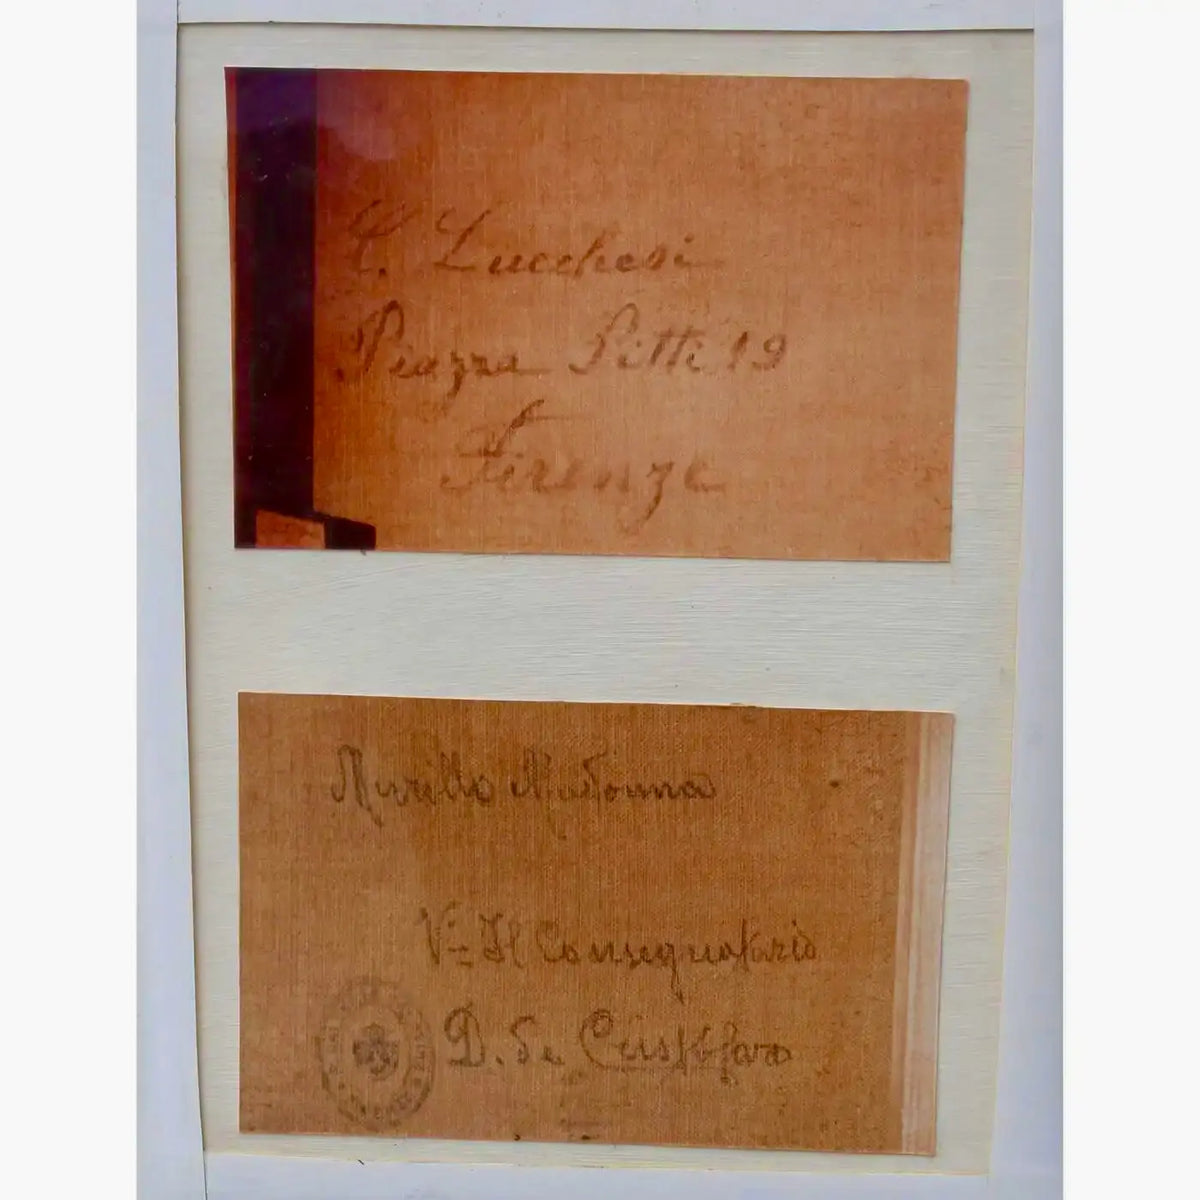 C. Lucchesi
Piazza Pitti 19
Firenze
Murillo Madonna
Vᵒ Il Consegnatario
D. de